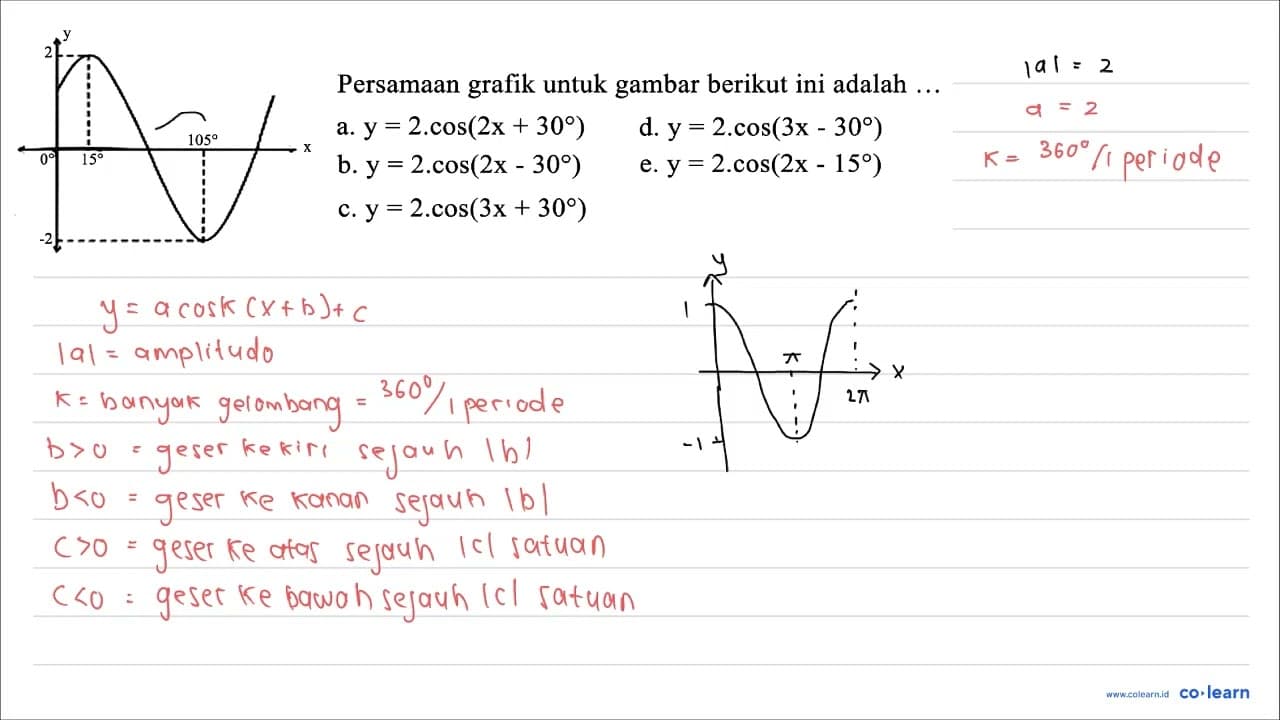 y
2
105°
x
0° 15°
-2
Persamaan grafik untuk gambar berikut ini adalah ...
a. y = 2.cos(2x + 30°) d. y = 2.cos(3x - 30°)
b. y = 2.cos(2x - 30°) e. y = 2.cos(2x - 15°)
c. y = 2.cos(3x + 30°)
|a| = 2
a = 2
K = 360°/1 periode
y = a cos k (x + b) + c
|a| = amplitudo
K = banyak gelombang = 360°/1 periode
b>0 = geser ke kiri sejauh |b|
b<0 = geser ke kanan sejauh |b|
c>0 = geser ke atas sejauh |c| satuan
c<0 = geser ke bawah sejauh |c| satuan
y
1
π
x
2π
-1
www.colearn.id co·learn